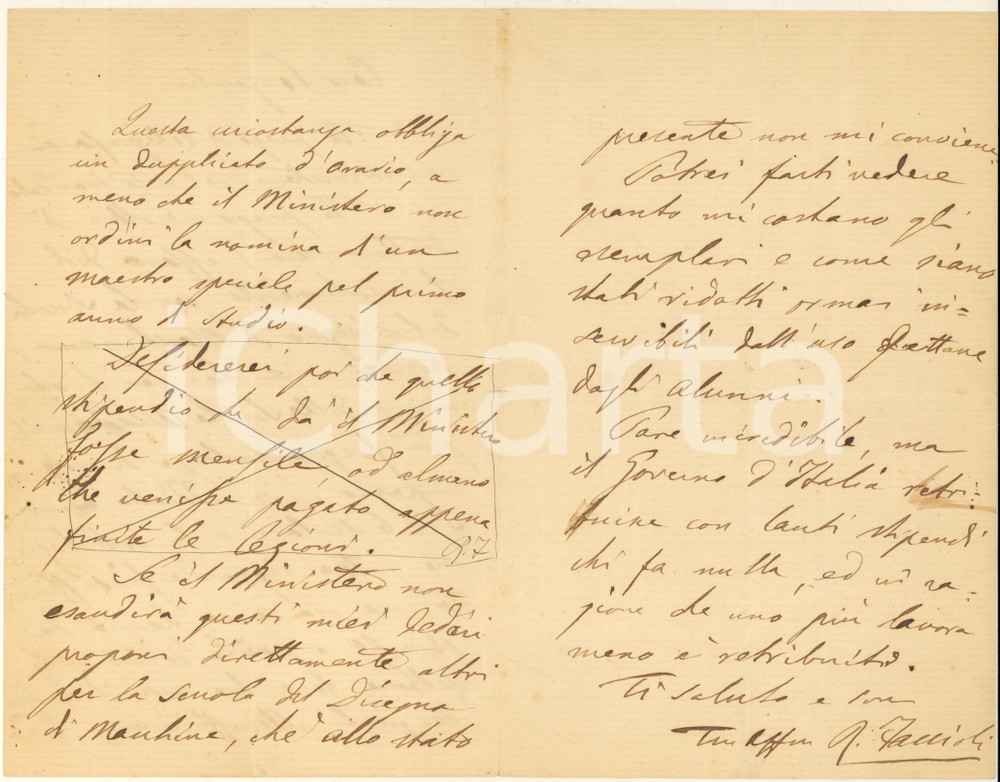 Questa circostanza obbliga
un dupplicato d'orario, a
meno che il Ministero non
ordini la nomina d'un
maestro speciale pel primo
anno di studio.
Desidererei poi che quello
stipendio che dà il Ministero
fosse mensile od almeno
che venisse pagato appena
finite le lezioni.
R. F
Se il Ministero non
esaudirà questi miei desideri
proponi direttamente altri
per la scuola del Disegno
di Macchine, chè allo stato
presente non mi conviene.
Potrei farti vedere
quanto mi costano gli
esemplari e come siano
stati ridotti ormai in=
servibili dall'uso
dagli alunni.
Pare incredibile, ma
il Governo d'Italia retri=
buisce con lauti stipendi
chi fa nulla, ed in ra=
gione che uno più lavora
meno è retribuito.
Ti saluto e son
Tuo R. Faccioli
iCharta